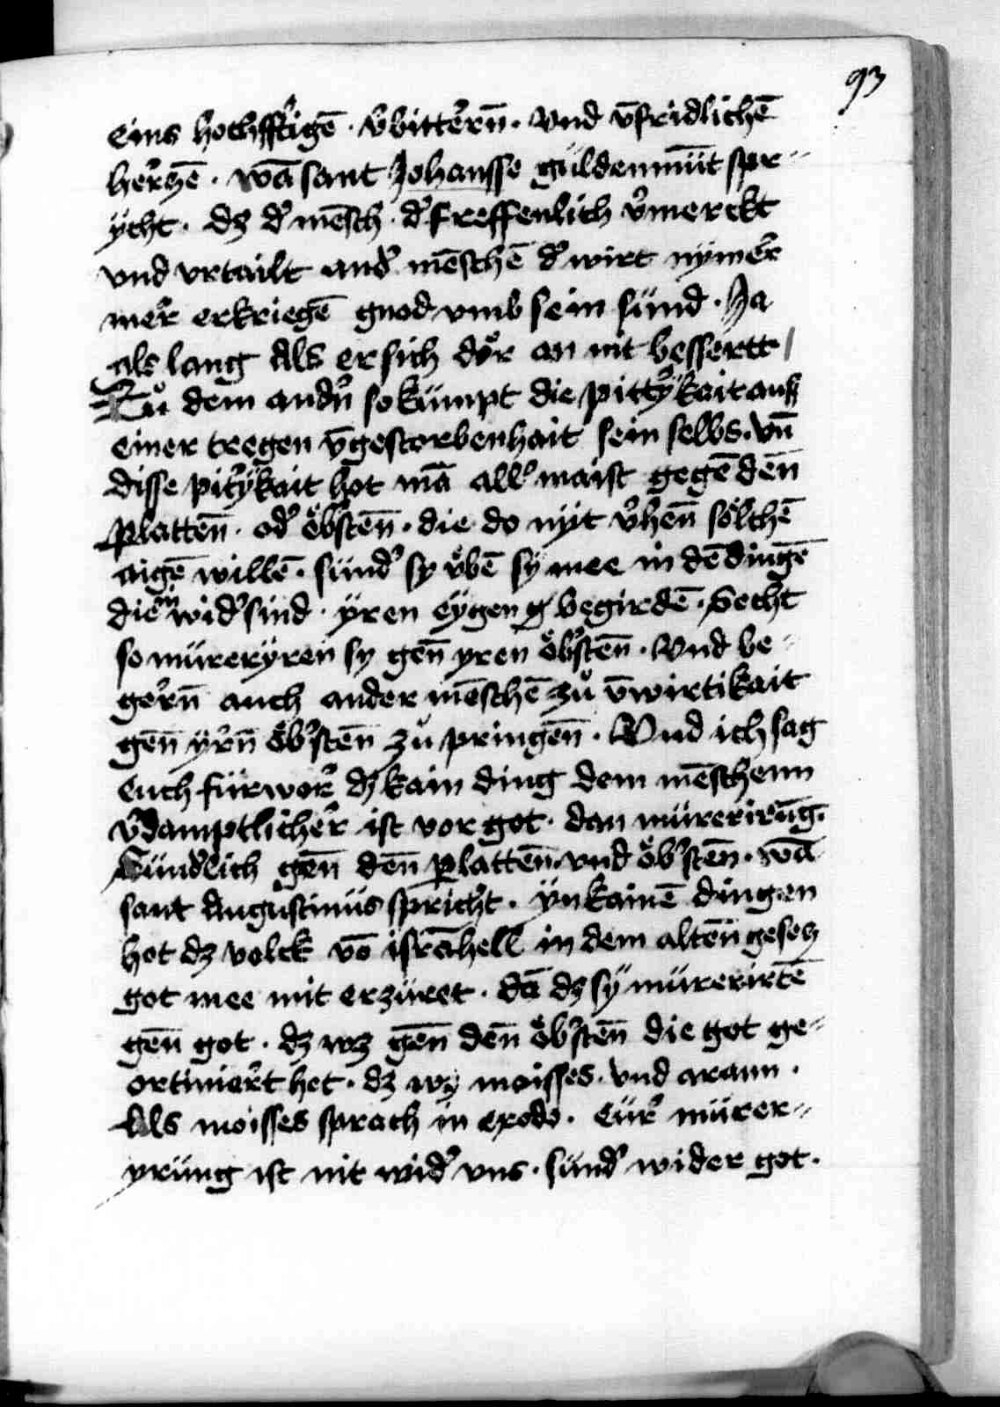 93
eins hochfꝼtigē · v̄bittern̄ · vnd v̄fridlichē
herczē · wā sant Johansse guldenmūt spr-
ÿcht · dz dˀ mēsch · dˀ freffenlich v̄merckt
vnd vrtailt andˀ mēschē dˀ wirt nÿmer
mer erkriegē gnod vmb sein sünd · Ja
als lang Als er sich dor an nit bessertt
Zů dem andn̄ so kümpt die pittˀÿkait auß
einer treegen v̄gestorbenhait sein selbs · vn̄
disse pitˀÿkait hot mā allˀ maist gegē den̄
Platten̄ · odˀ öbˀsten̄ · die do nÿt v̄hen̄ sölchē
aigē willē · sündˀ sy v̊bē sÿ mee in dē dingē
die widˀ sind · ÿren eÿgen begirdē · Secht
so mürerÿren sy gen̄ yren öbˀsten̄ · Vnd be-
gern̄ auch ander mēschē zů v̄wirtikait
gen̄ ÿrn̄ öbˀsten̄ zů pringen̄ · Vnd ich sag
euch fürwor dz kain ding dem mēschenn
v̄damptlicher ist vor got · dan mürerirūg ·
Sündˀlich gen̄ den̄ Platten̄ · vnd öbˀsten̄ · wā
sant Augustinüs spricht · ÿn kainē dingen
hot dz volck vō isrāhell in dem alten̄ gesecz
got mee mit erzüret · dā dz sÿ mürerirtē
gen̄ got · dz wz gen̄ den̄ öbˀsten̄ die got ge-
ortiniert het · dz wz moisses · vnd araun ·
Als moisses sprach in exodo · Eür mürer-
yrüng ist nit widˀ vns · sündˀ wider got ·